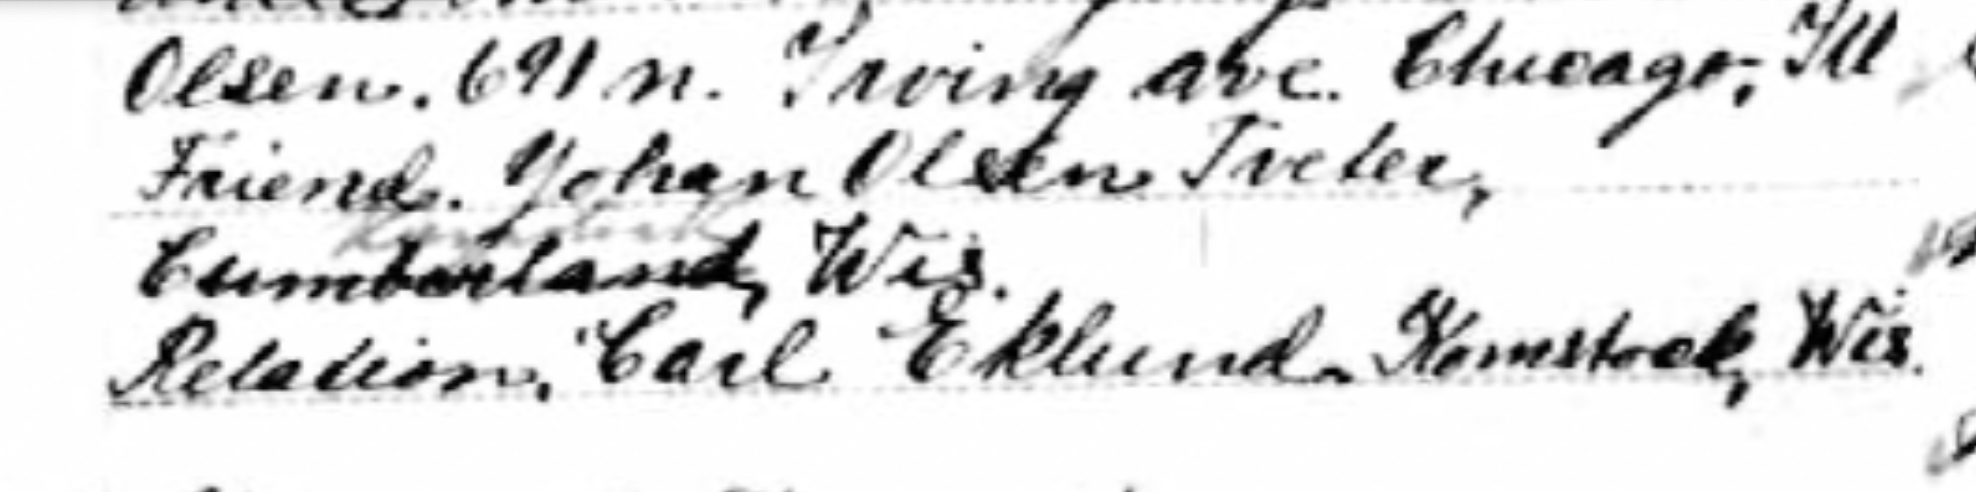 Olsen. 691 n. Irving ave. Chicago, Ill
Friend. Johan Olsen Tveter,
Cumberland, Wis.
Relation. Carl Eklund. Komstock, Wis.